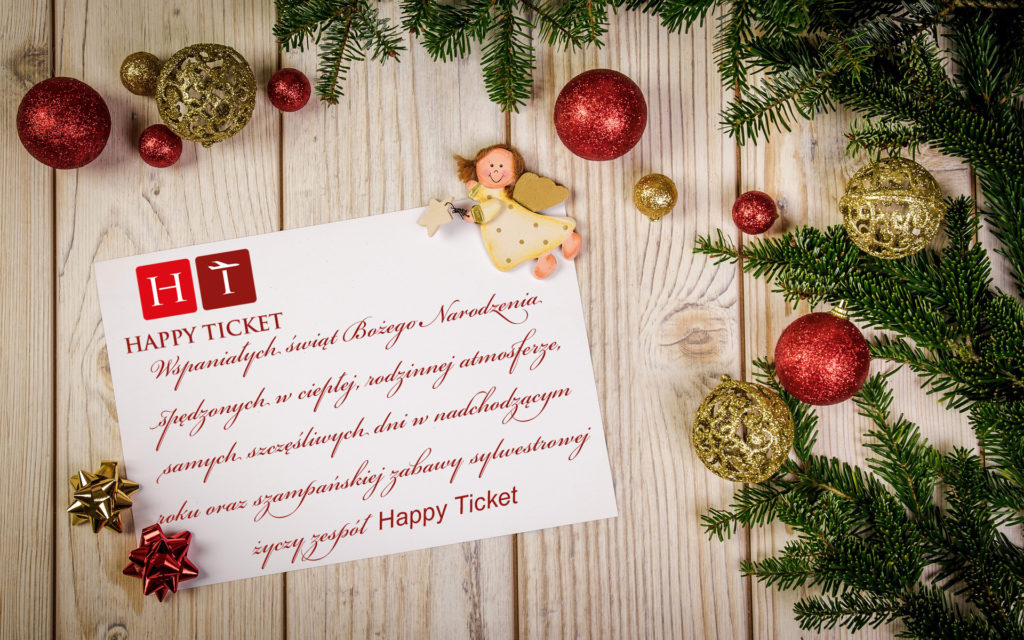 HT
HAPPY TICKET
Wspaniałych świąt Bożego Narodzenia
spędzonych w ciepłej, rodzinnej atmosferze,
samych szczęśliwych dni w nadchodzącym
roku oraz szampańskiej zabawy sylwestrowej
życzy zespół Happy Ticket